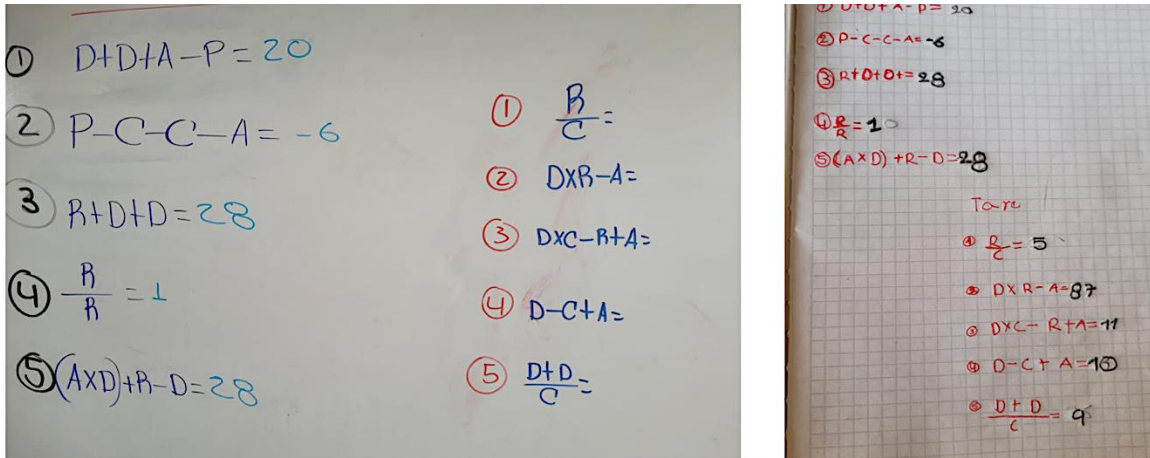 ① D+D+A-P=20
② P-C-C-A=-6
③ R+D+D=28
④ R/R=1
⑤ (AXD)+R-D=28
① R/C=
② DXR-A=
③ DXC-R+A=
④ D-C+A=
⑤ D+D/C=
① D+D+A-P=20
② P-C-C-A=-6
③ R+D+D+=28
④ R/R=1
⑤ (AXD)+R-D=28
Tare
① R/C=5
② DXR-A=87
③ DXC-R+A=11
④ D-C+A=10
⑤ D+D/C=9